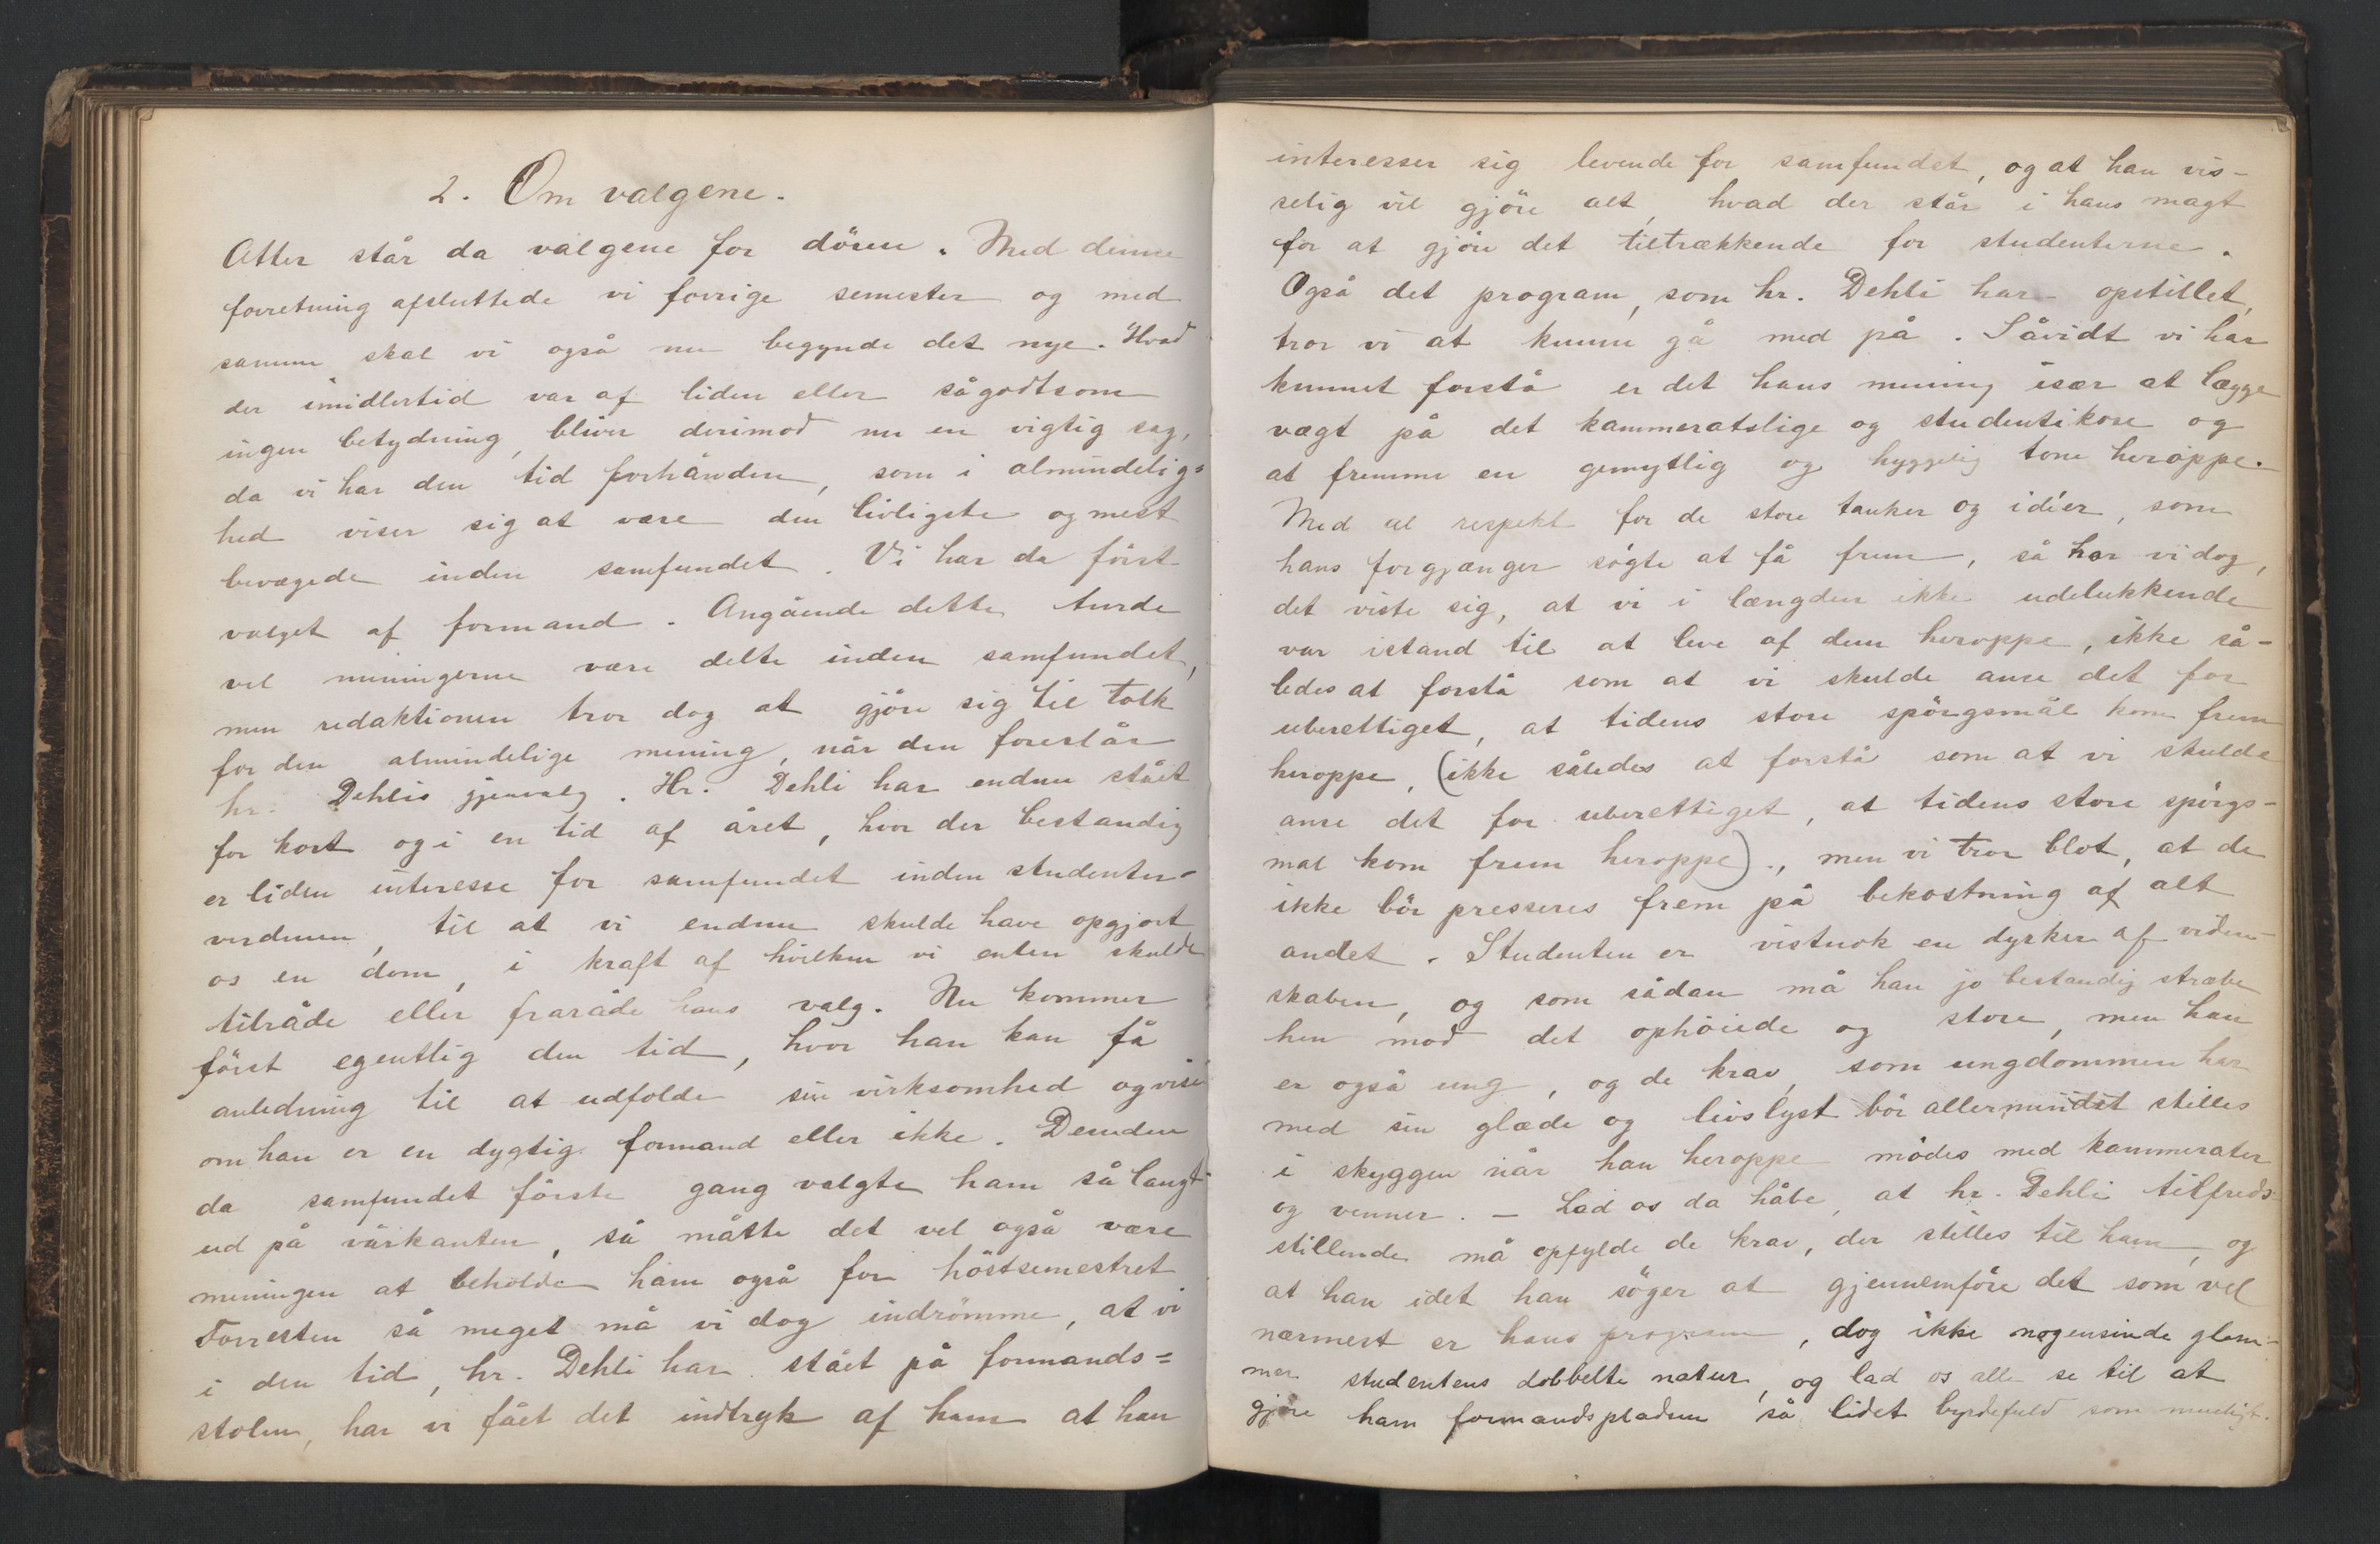 2. Om valgene.
Atter står da valgene for dören. Med denne
forretning afsluttede vi forrige semester og med
samme skal vi også nu begynde det nye. Hvad
der imidlertid var af liden eller sågodtsom
ingen betydning, bliver derimod nu en vigtig sag,
da vi har den tid forhånden, som i almindelig=
hed viser sig at være den livligste og mest
bevægede inden samfundet. Vi har da först
valget af formand. Angående dette turde
vel meningerne være delte inden samfundet,
men redaktionen tror dog at gjöre sig til tolk
for den almindelige mening, når den foreslår
hr. Dehlis gjenvalg. Hr. Dehli har endnu stået
for kort og i en tid af året, hvor der bestandig
er liden interesse for samfundet inden studenter-
verdenen, til at vi endnu skulde have opgjort
os en dom, i kraft af hvilken vi enten skulde
tilråde eller fraråde hans valg. Nu kommer
först egentlig den tid, hvor han kan få
anledning til at udfolde sin virksomhed og vise
om han er en dygtig formand eller ikke. Desuden
da samfundet förste gang valgte ham så langt
ud på vårkanten, så måtte det vel også være
meningen at beholde ham også for höstsemestret
Forresten så meget må vi dog indrömme, at vi
i den tid, hr. Dehli har stået på formands=
stolen, har vi fået det indtryk af ham at han
interesser sig levende for samfundet, og at han vis-
selig vil gjöre alt, hvad der står i hans magt
for at gjöre det tiltrækkende for studenterne.
Også det program, som hr. Dehli har opstillet,
tror vi at kunne gå med på. Såvidt vi har
kunnet forstå er det hans mening især at lægge
vægt på det kammeratslige og studentikose og
at fremme en gemytlig og hyggelig tone heroppe.
Med al respekt for de store tanker og idéer, som
hans forgjænger sögte at få frem, så har vi dog,
det viste sig, at vi i længden ikke udelukkende
var istand til at leve af dem heroppe, ikke så-
ledes at forstå som at vi skulde anse det for
uberettiget, at tidens store spörgsmål kom frem
heroppe, (ikke således at forstå som at vi skulde
anse det for uberettiget, at tidens store spörgs-
mål kom frem heroppe)., men vi tror blot, at de
ikke bör presseres frem på bekostning af alt
andet. Studenten er vistnok en dyrker af viden-
skaben, og som sådan må han jo bestandig stræbe
hen mod det ophöiede og store, men han
er også ung, og de krav, som ungdommen har
med sin glæde og livslyst bör allermindst stilles
i skyggen når han heroppe mödes med kammerater
og venner. – Lad os da håbe, at hr. Dehli tilfreds-
stillende må opfylde de krav, der stilles til ham, og
at han idet han söger at gjennemföre det som vel
nærmest er hans program, dog ikke nogensinde glem-
mer studentens dobbelte natur, og lad os alle se til at
gjöre ham formandspladsen så lidet byrdefuld som muligt.